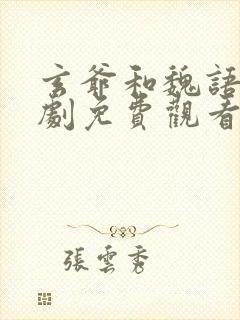 玄爺和魏語
劇免費觀看
張雲秀